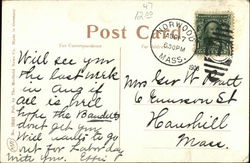 .47
12.00
Post Card
For Correspondence
NORWOOD
630PM
MASS.
Will see you
the last week
in Aug if
all is well
hope the Bandits
don't get you
Will want to go
out for Labor day
with you. Effie
Mrs Geo W Pratt
6 Emerson St
Haverhill
Mass.